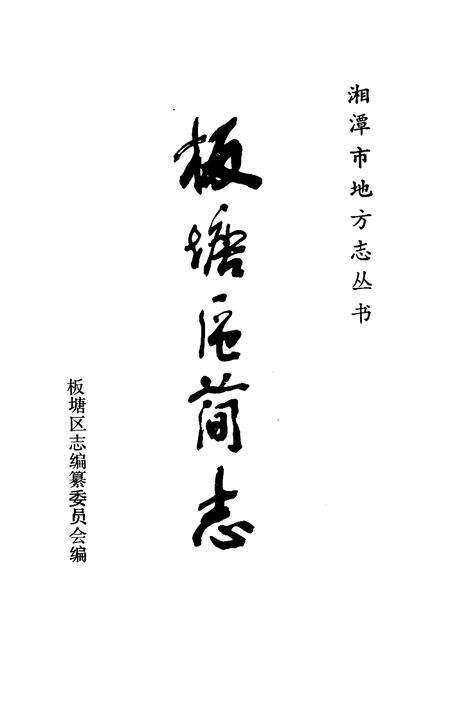 湘潭市地方志丛书
板塘区简志
板塘区志编纂委员会编